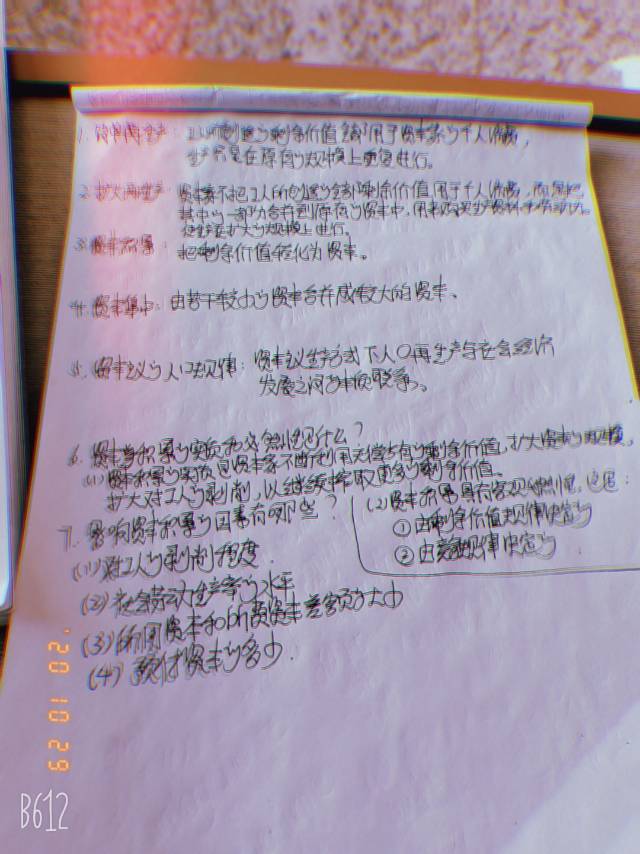 1. 简单再生产：工人所创造的剩余价值全部用于资本家的个人消费，
生产只是在原有的规模上重复进行。
2. 扩大再生产：资本家不把工人所创造的全部剩余价值用于个人消费，而是把
其中的一部分合并到原有的资本中，用来购买生产资料
使生产在扩大的规模上进行。
3. 资本积累：把剩余价值转化为资本。
4. 资本集中：由若干较小的资本合并成较大的资本。
5. 资本主义的人口规律：资本主义生产方式下人口再生产与社会经济
发展之间的本质联系。
6. 资本积累的实质和必然性是什么？
(1) 资本积累的实质是资本家不断利用无偿占有的剩余价值，扩大资本的规模，
扩大对工人的剥削，以继续榨取更多的剩余价值。
(2) 资本积累具有客观必然性，这是：
① 由剩余价值规律决定的
② 由竞争规律决定的
7. 影响资本积累的因素有哪些？
(1) 对工人的剥削程度
(2) 社会劳动生产率的水平
(3) 所用资本和所费资本差额的大小
(4) 预付资本的多少.
'20 10 29
B612